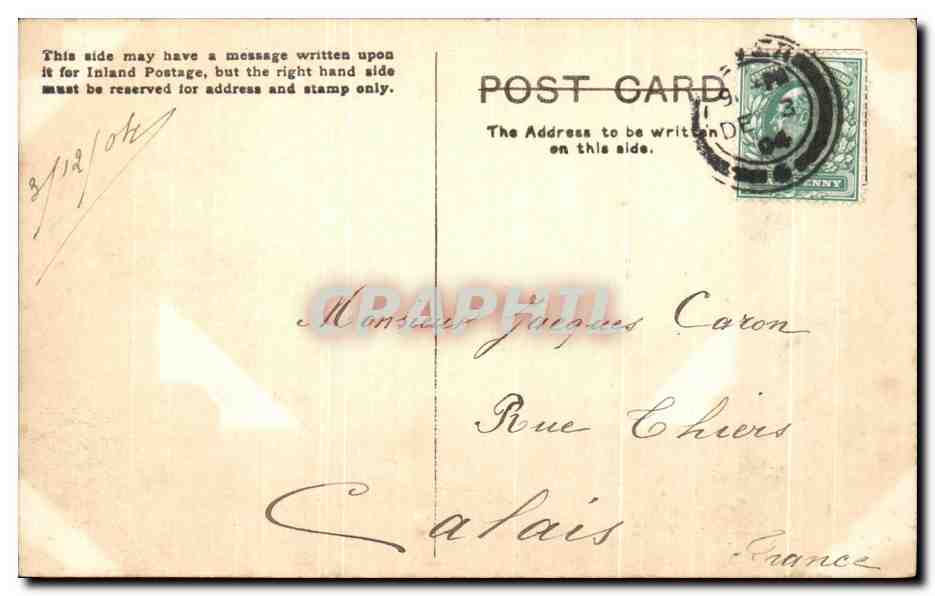 This side may have a message written upon
it for Inland Postage, but the right hand side
must be reserved for address and stamp only.
3/12/04
POST CARD
The Address to be written
on this side.
DE 3
04
PENNY
CRAPHTL
Monsieur Jacques Caron
Rue Thiers
Calais
France